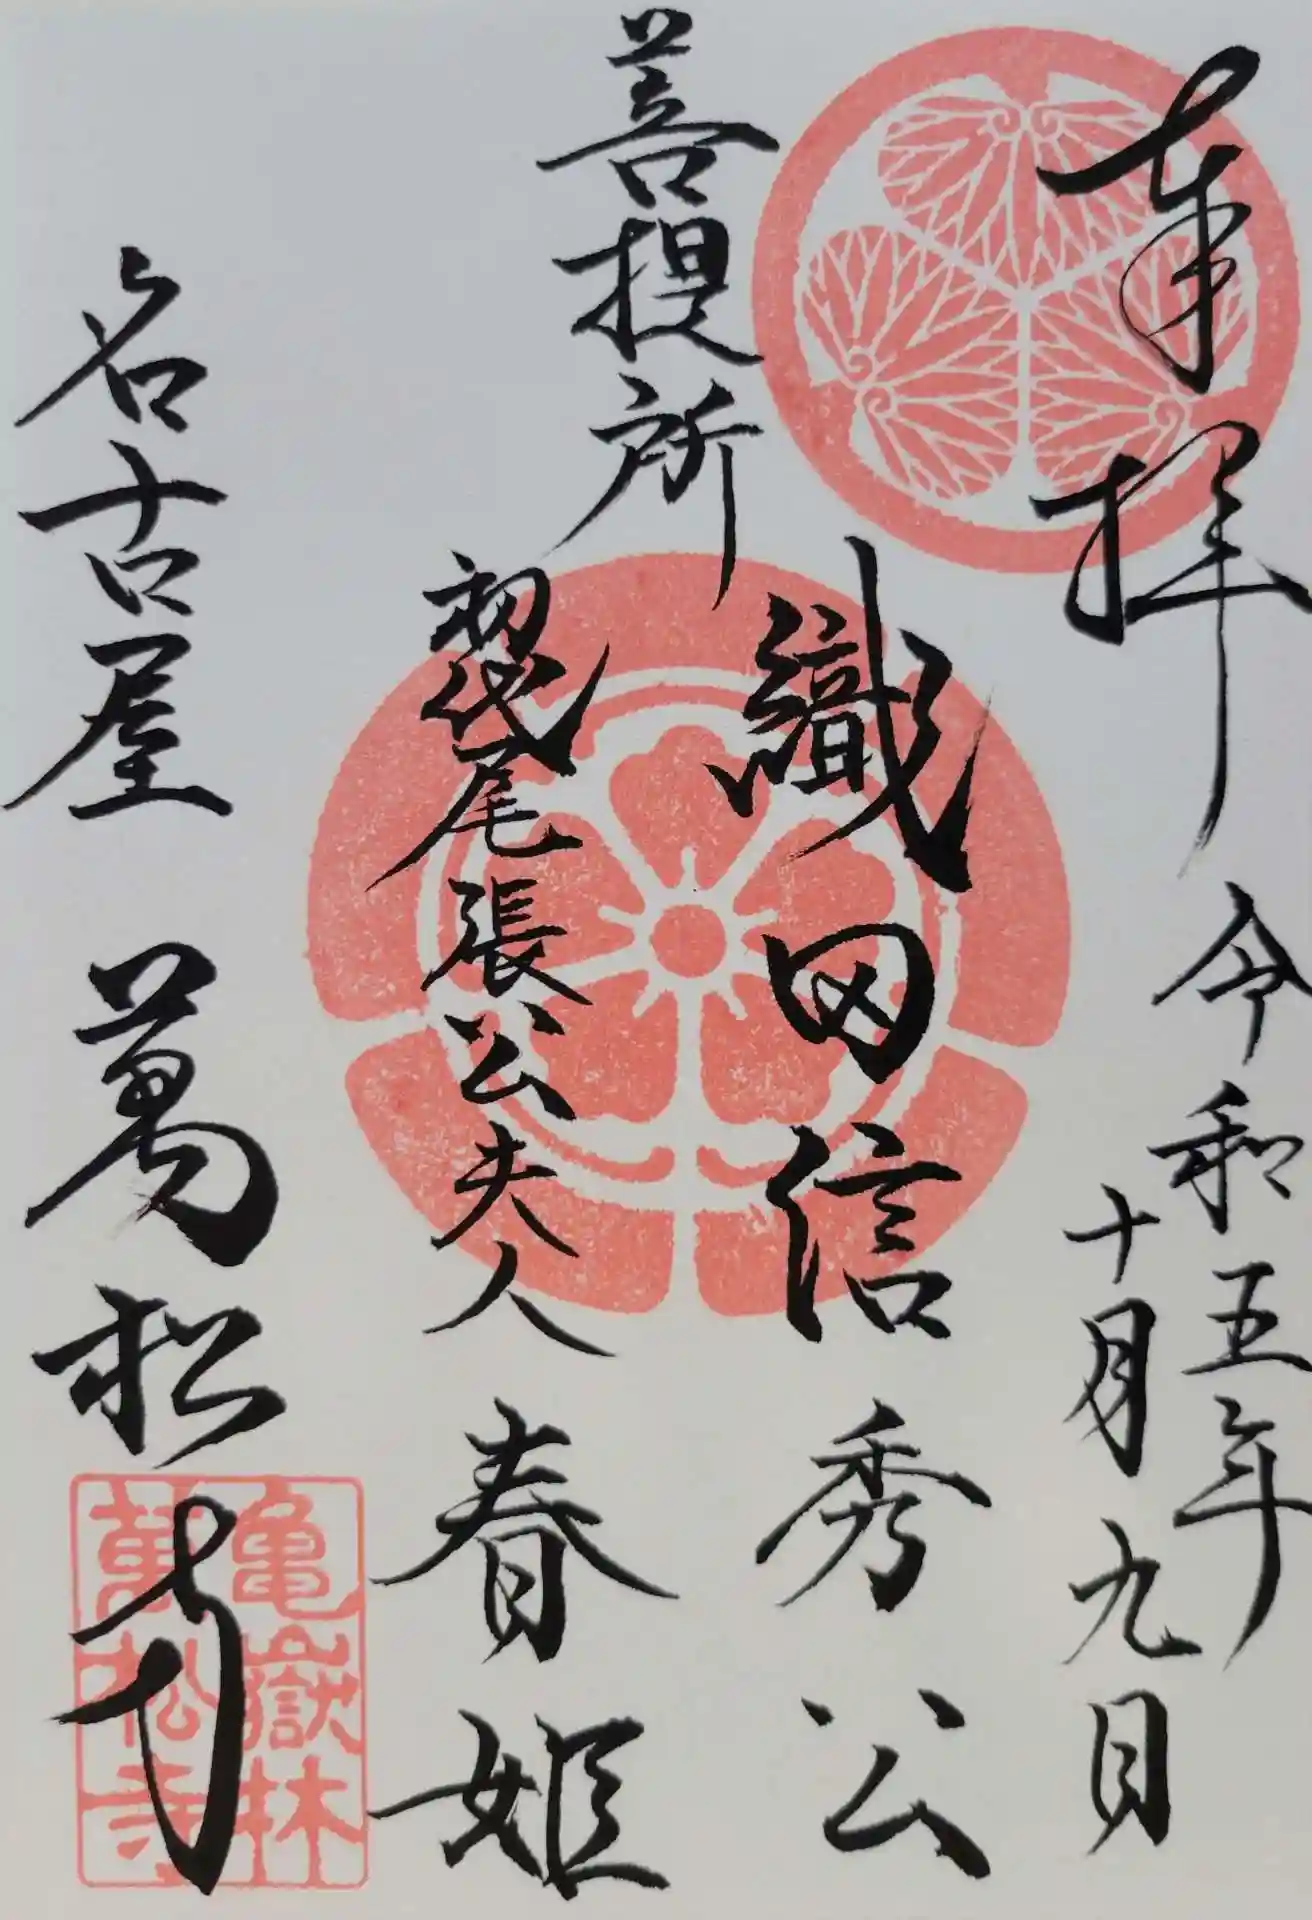 奉拝
令和五年
十月九日
菩提所
織田信秀公
初代尾張公夫人
春姫
名古屋 萬松寺
亀嶽林
萬松寺